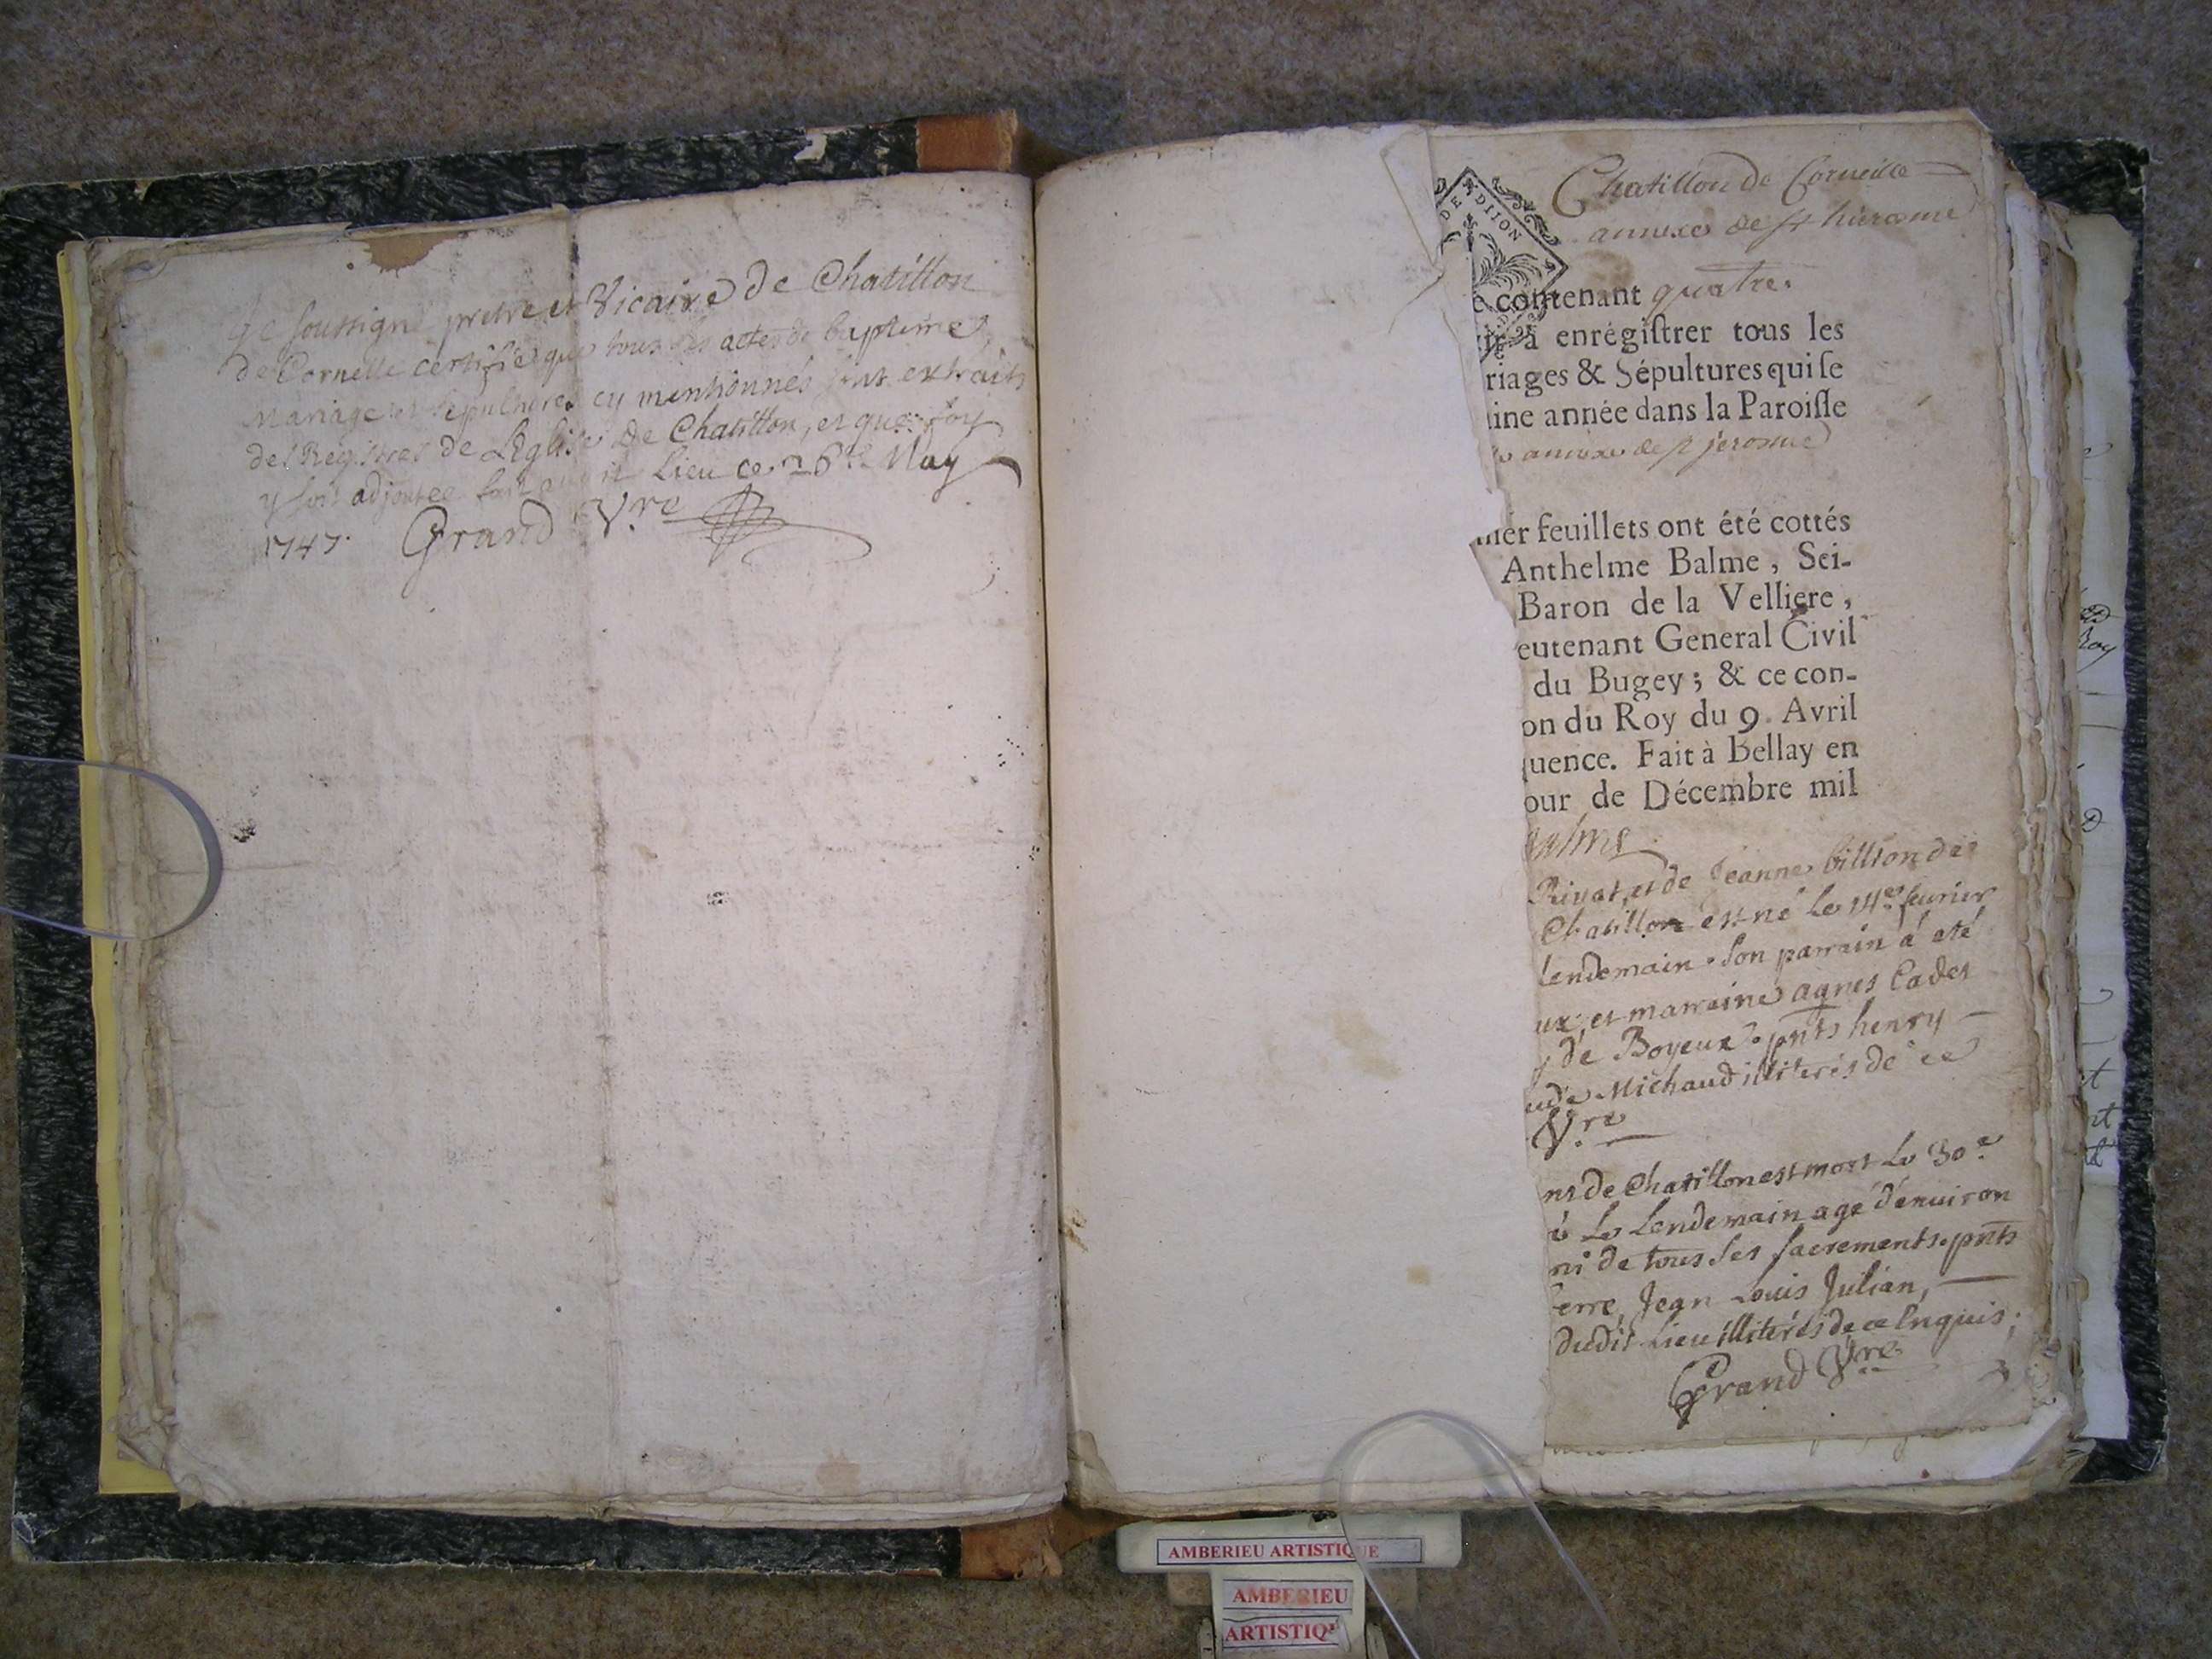 Je soussigné pretre et Vicaire de Chatillon
de Cornelle certifie que tous les actes de baptime,
Mariage et sepulture cy mentionnés sont extraits
des Registres de Leglise de Chatillon, et que foy
y soit adjoutee fait audit Lieu ce 26e May
1747. Grand Vre
Chatillon de Corneille
annexe de st hierosme
DE DIION
e contenant quatre.
ir à enrégistrer tous les
riages & Sépultures qui se
ine année dans la Paroisse
annexe de st jerosme
mér feuillets ont été cottés
Anthelme Balme, Sei-
Baron de la Velliere,
eutenant General Civil
du Bugey; & ce con-
on du Roy du 9. Avril
quence. Fait à Bellay en
our de Décembre mil
Balme
Rivat, et de Jeanne billion de
Chatillon est né le 14e feurier
lendemain. Son parrain á eté
ux, et marraine agnes Cadet
y de Boyeux. pnts henry
ude Michaud illiterés de ce
Vre
nt de Chatillon est mort Le 30e
é Le Lendemain agé d'enuiron
ni de tous ses sacrements. pnts
erre, Jean Louis Julian,
dudit Lieu illiterés de ce Enquis;
Grand Vre
Roy
AMBERIEU ARTISTIQUE
AMBERIEU
ARTISTIQ